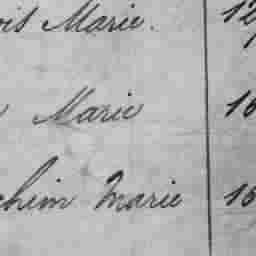 ois Marie. 12
Marie 16
chim Marie 15